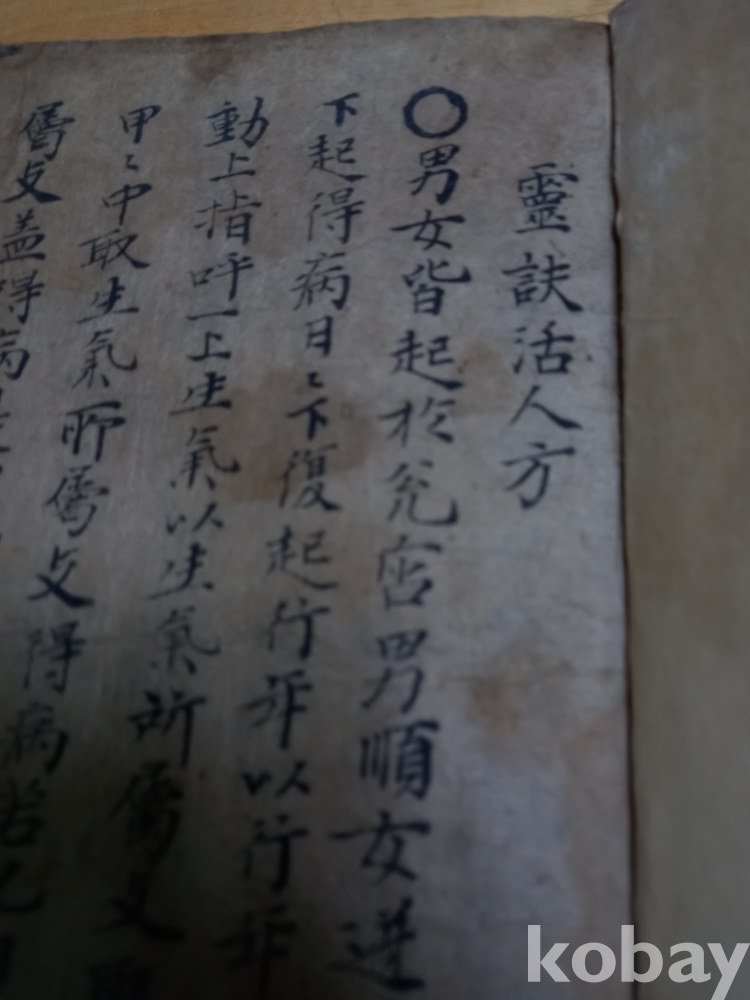 靈訣活人方
〇男女皆起於兊宮男順女逆
下起得病日〻下復起行年以行年
動上指呼一上生氣以生氣所屬爻
甲〻中取生氣所屬爻得病若
屬爻盖得病
kobay